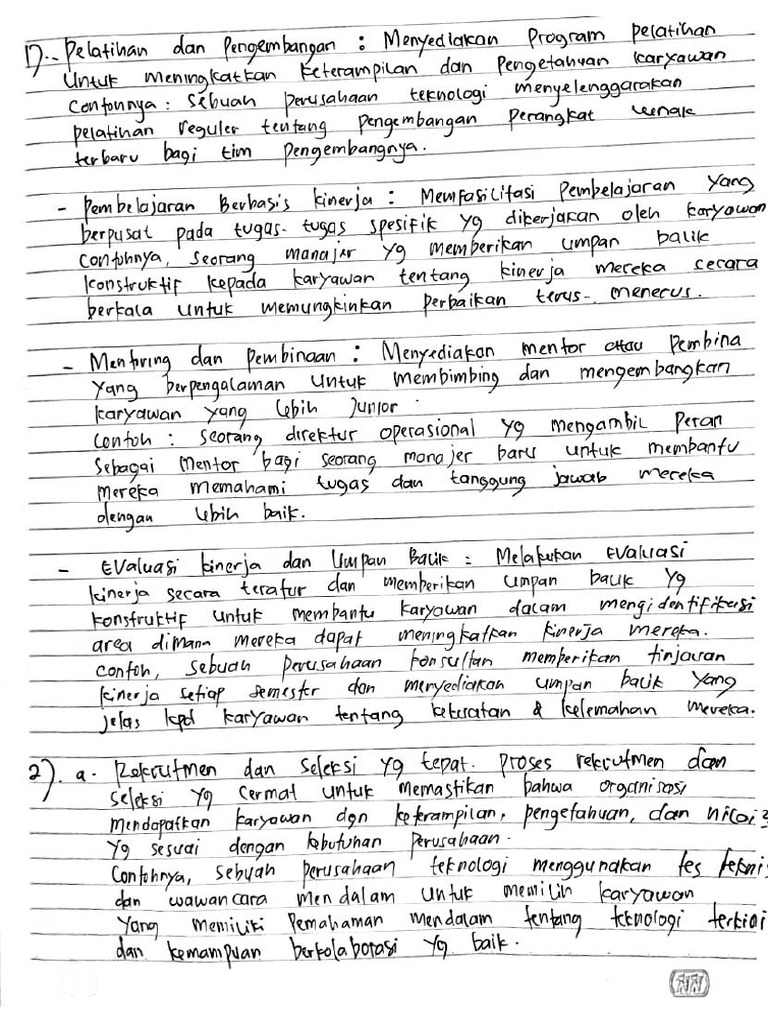 1). - Pelatihan dan Pengembangan : Menyediakan Program pelatihan
Untuk meningkatkan keterampilan dan Pengetahuan karyawan
Contohnya : sebuah perusahaan teknologi menyelenggarakan
pelatihan reguler tentang pengembangan perangkat lunak
terbaru bagi tim pengembangnya.
- Pembelajaran Berbasis kinerja : Memfasilitasi Pembelajaran Yang
berpusat pada tugas-tugas spesifik yg dikerjakan oleh karyawan
Contohnya, seorang manajer yg memberikan umpan balik
konstruktif kepada karyawan tentang kinerja mereka secara
berkala untuk memungkinkan perbaikan terus-menerus.
- Mentoring dan pembinaan : Menyediakan mentor atau Pembina
Yang berpengalaman Untuk membimbing dan mengembangkan
karyawan yang lebih Junior.
Contoh : Seorang direktur operasional yg mengambil Peran
Sebagai Mentor bagi seorang manajer baru untuk membantu
mereka memahami tugas dan tanggung jawab mereka
dengan lebih baik.
- Evaluasi kinerja dan Umpan Balik : Melakukan Evaluasi
kinerja secara teratur dan memberikan umpan balik yg
konstruktif untuk membantu karyawan dalam mengidentifikasi
area dimana mereka dapat meningkatkan kinerja mereka.
contoh, sebuah perusahaan konsultan memberikan tinjauan
kinerja setiap semester dan menyediakan umpan balik yang
jelas kpd karyawan tentang kekuatan & kelemahan mereka.
2). a. Rekrutmen dan Seleksi yg tepat. Proses rekrutmen dan
seleksi yg cermat untuk memastikan bahwa organisasi
mendapatkan karyawan dgn keterampilan, pengetahuan, dan nilai2
yg sesuai dengan kebutuhan perusahaan.
Contohnya, sebuah perusahaan teknologi menggunakan tes teknis
dan wawancara mendalam untuk memilih karyawan
Yang memiliki Pemahaman mendalam tentang teknologi terkini
dan kemampuan berkolaborasi yg baik.